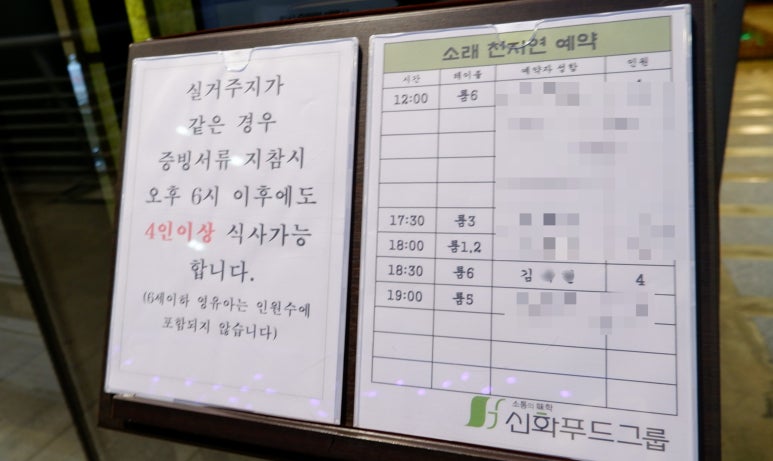 실거주지가
같은 경우
증빙서류 지참시
오후 6시 이후에도
4인이상 식사가능
합니다.
(6세이하 영유아는 인원수에
포함되지 않습니다)
소래 천지연 예약
시간 테이블 예약자 성함 인원
12:00 룸6
17:30 룸3
18:00 룸1,2
18:30 룸6 김 4
19:00 룸5
소통의 미학
신화푸드그룹